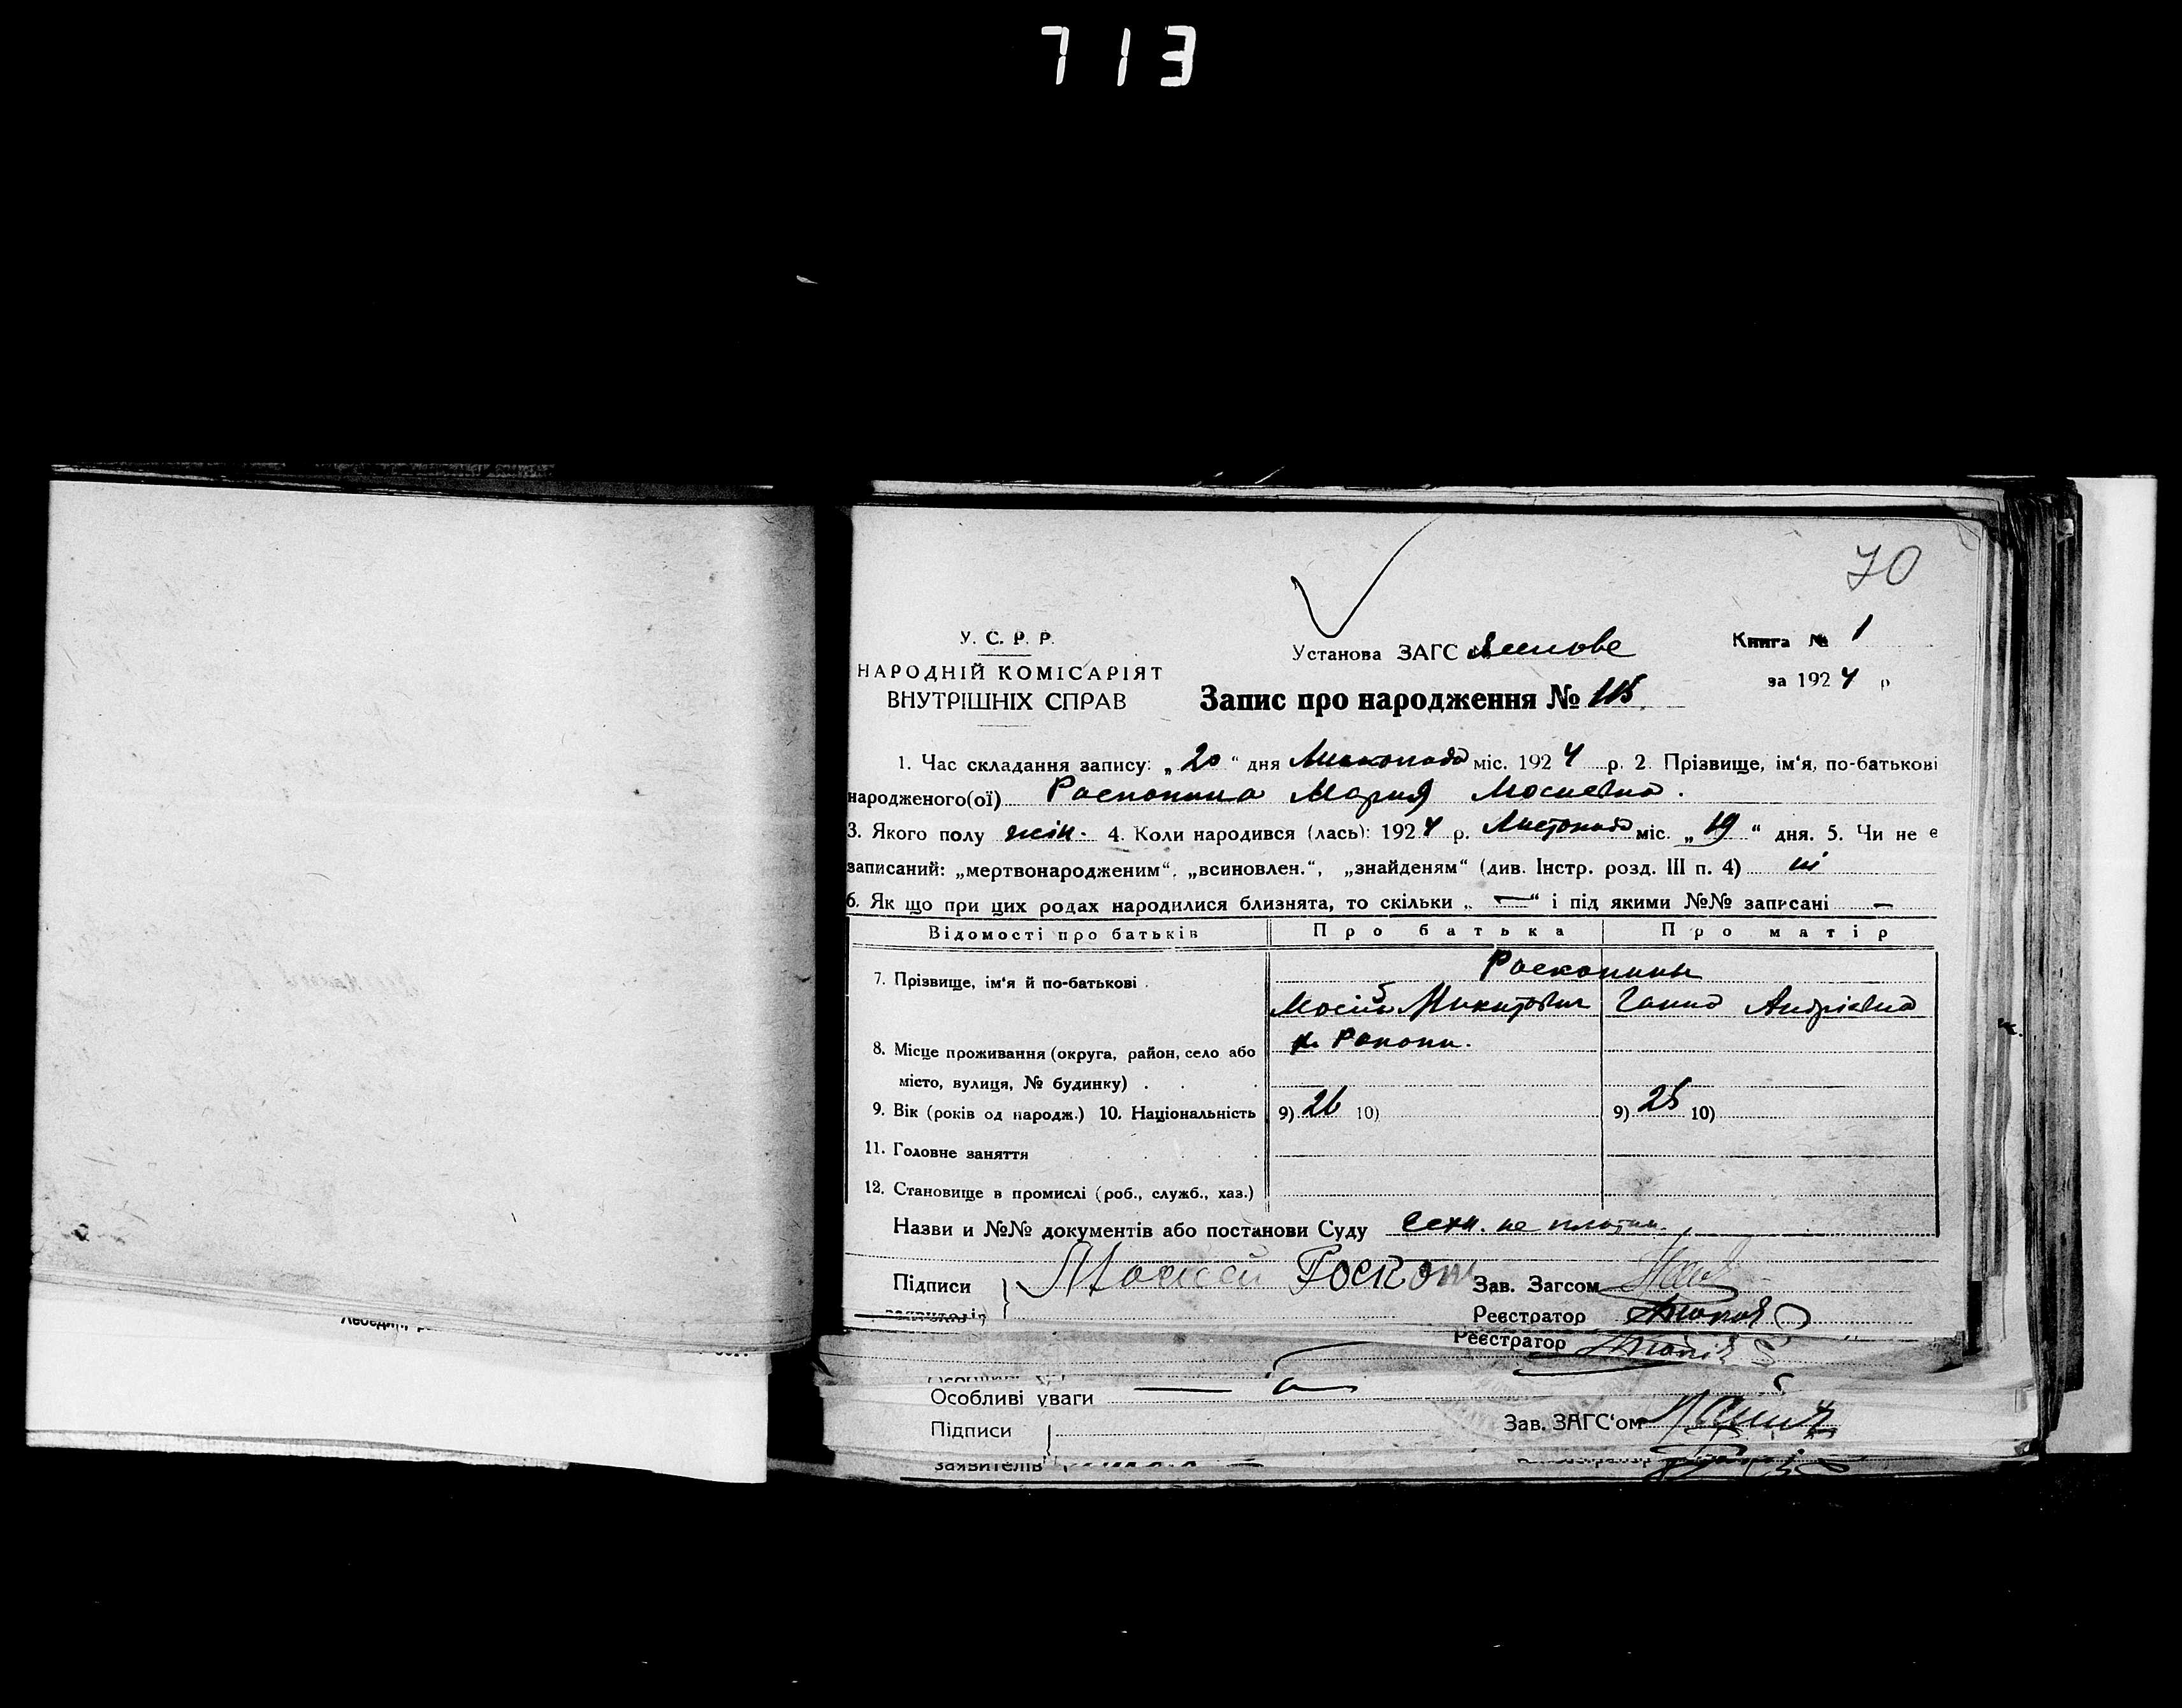 713
70
У. С. Р. Р.
НАРОДНІЙ КОМІСАРІЯТ
ВНУТРІШНІХ СПРАВ
Установа ЗАГС
Книга № 1
за 1924 р
Запис про народження № 115
1. Час складання запису: „20“ дня Листопада міс. 1924 р. 2. Прізвище, ім‘я, по-батькові
народженого(ої) Мария Мосиевна.
3. Якого полу жін. 4. Коли народився (лась): 1924 р. Листопада міс. „19“ дня. 5. Чи не є
записаний: „мертвонародженим“, „всиновлен.“, „знайденям“ (див. Інстр. розд. III п. 4) ні
6. Як що при цих родах народилися близнята, то скільки „—“ і під якими №№ записані —
Відомості про батьків Про батька Про матір
7. Прізвище, ім‘я й по-батькові
Роскопины
Мосій Микитович Ганна Андріевна
8. Місце проживання (округа, район, село або
місто, вулиця, № будинку)
9. Вік (років од народж.) 10. Національність 9) 26 10) 9) 25 10)
11. Головне заняття
12. Становище в промислі (роб., служб., хаз.)
Назви и №№ документів або постанови Суду не
Підписи
заявителів
Мосией Роскоп
Зав. Загсом
Реєстратор
Реєстратор
Особливі уваги
Підписи
Зав. ЗАГС‘ом
заявителів